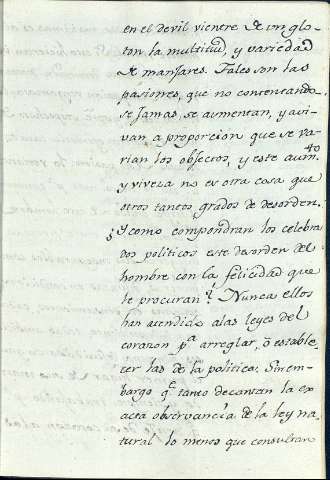 en el devil vientre de un glo-
ton la multitud, y variedad
de manjares. Tales son las
pasiones, que no contentando-
se jamas, se aumentan, y avi-
van a proporcion que se va-
rian los obsectos, y este aum.to
y viveza no es otra cosa que
otros tantos grados de desorden.
¿Y como compondran los celebra
dos politicos este desorden del
hombre con la felicidad que
le procuran? Nunca ellos
han atendido a las leyes del
corazon p.a arreglar, ó estable-
cer las de la politica. Sin em-
bargo q.e tanto decantan la ex-
acta observancia de la ley na-
tural lo menos que consultan